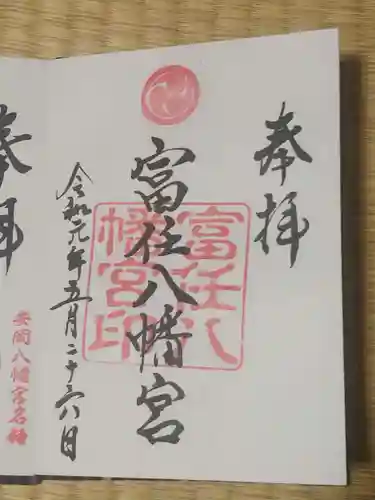 奉拝
富任八幡宮
富任八
幡宮印
令和元年五月二十六日
奉拝